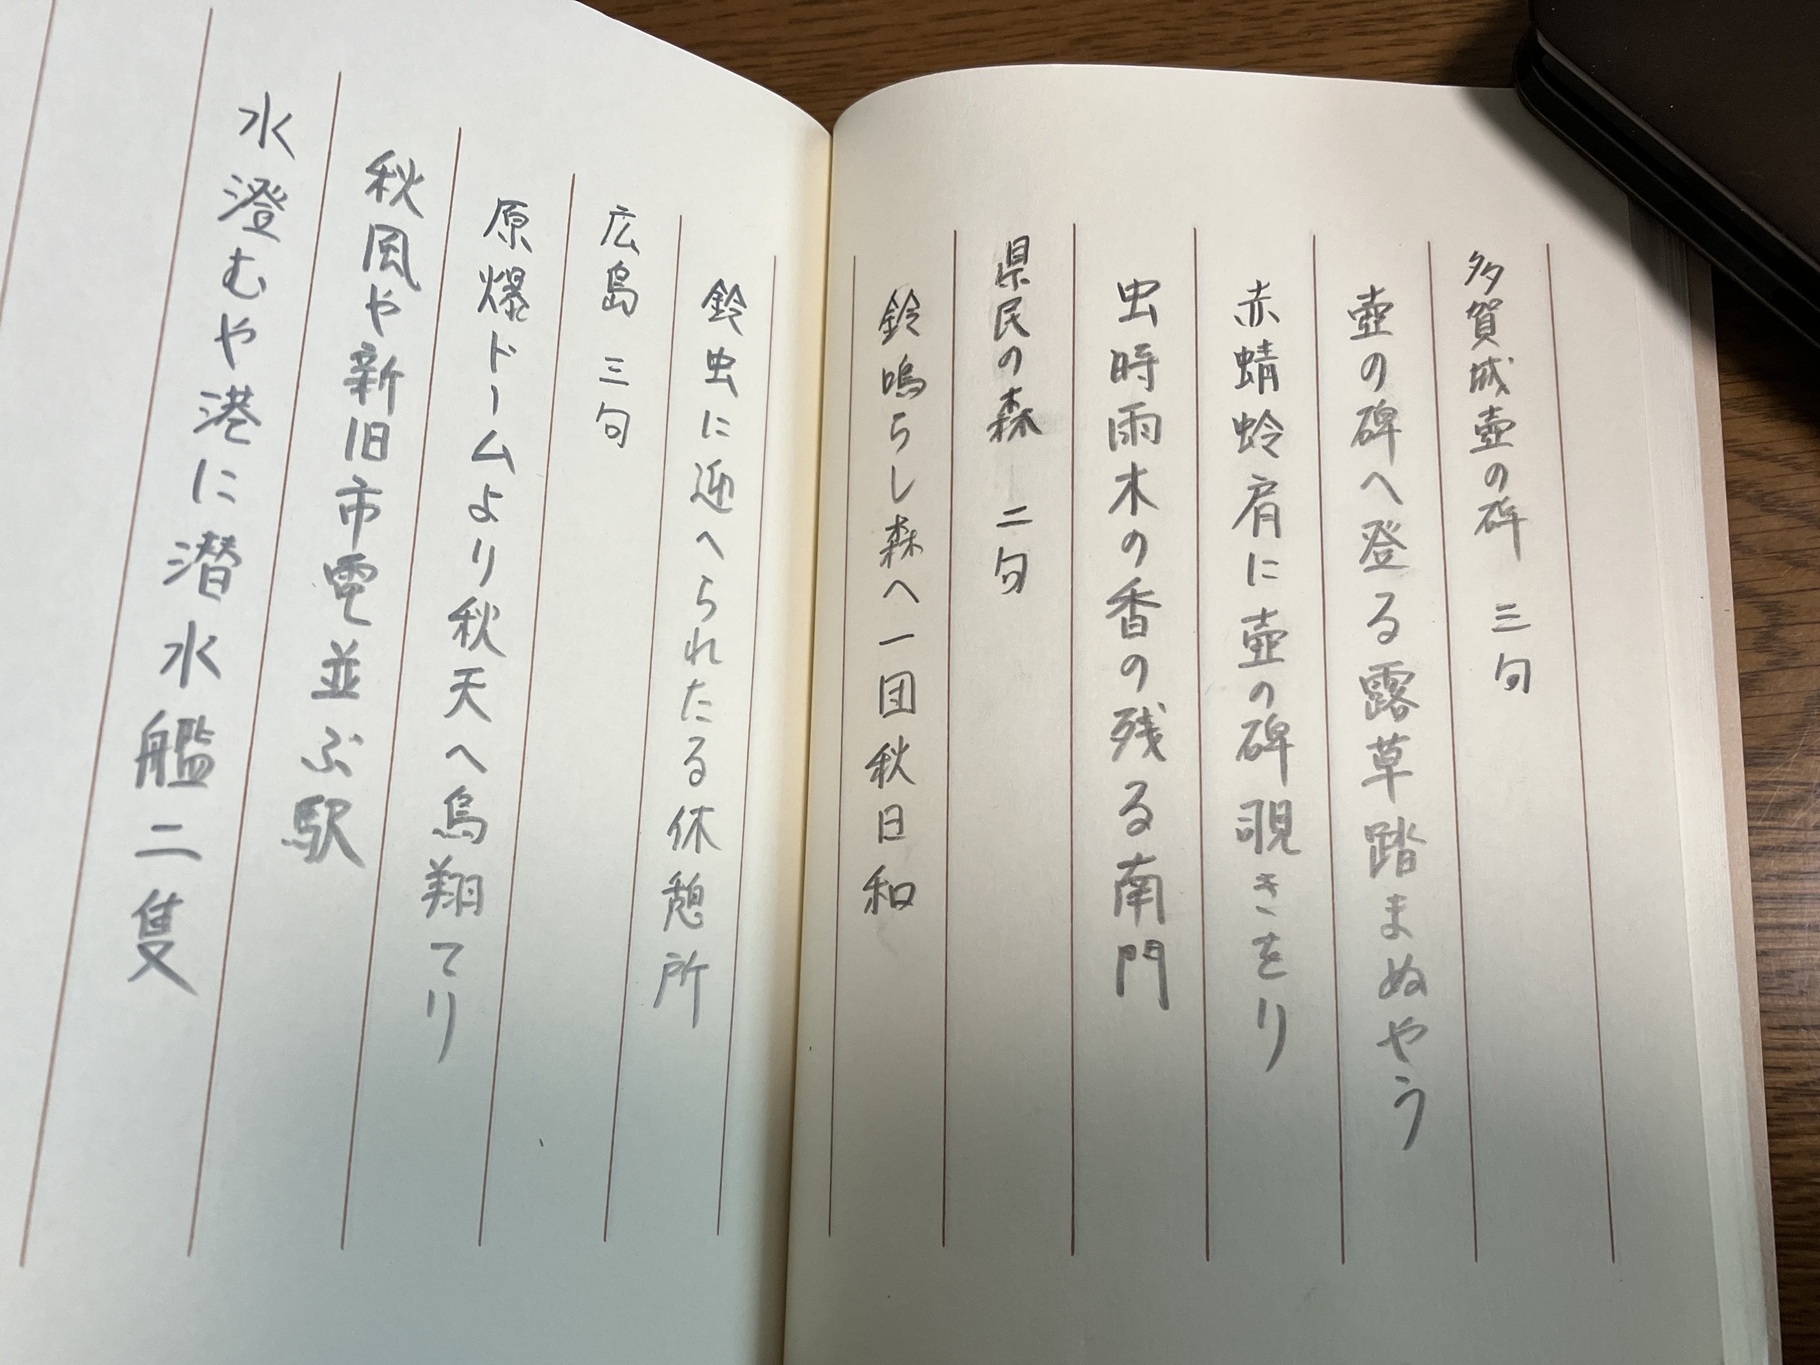 多賀城壺の碑　三句
壺の碑へ登る露草踏まぬやう
赤蜻蛉肩に壺の碑覗きをり
虫時雨木の香の残る南門
県民の森　二句
鈴鳴らし森へ一団秋日和
鈴虫に迎へられたる休憩所
広島　三句
原爆ドームより秋天へ烏翔てり
秋風や新旧市電並ぶ駅
水澄むや港に潜水艦二隻